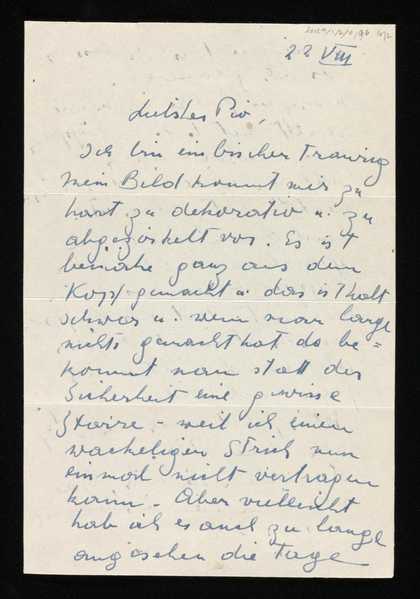 22 VIII
Liebstes Pio,
Ich bin ein bischen traurig
mein Bild kommt mir zu
hart zu dekorativ u. zu
abgezirkelt vor. Es ist
beinahe ganz aus dem
Kopf gemacht u. das ist halt
schwer u. wenn man lange
nichts gemacht hat da be=
kommt man statt der
Sicherheit eine gewisse
Starre - weil ich einen
wackeligen Strich nun
einmal nicht vertragen
kann. Aber vielleicht
hab ich es auch zu lange
angesehen die Tage